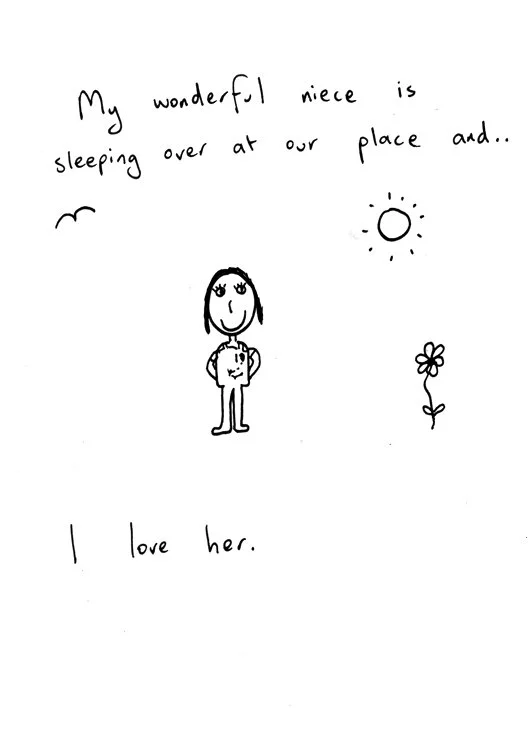 My wonderful niece is
sleeping over at our place and..
I love her.